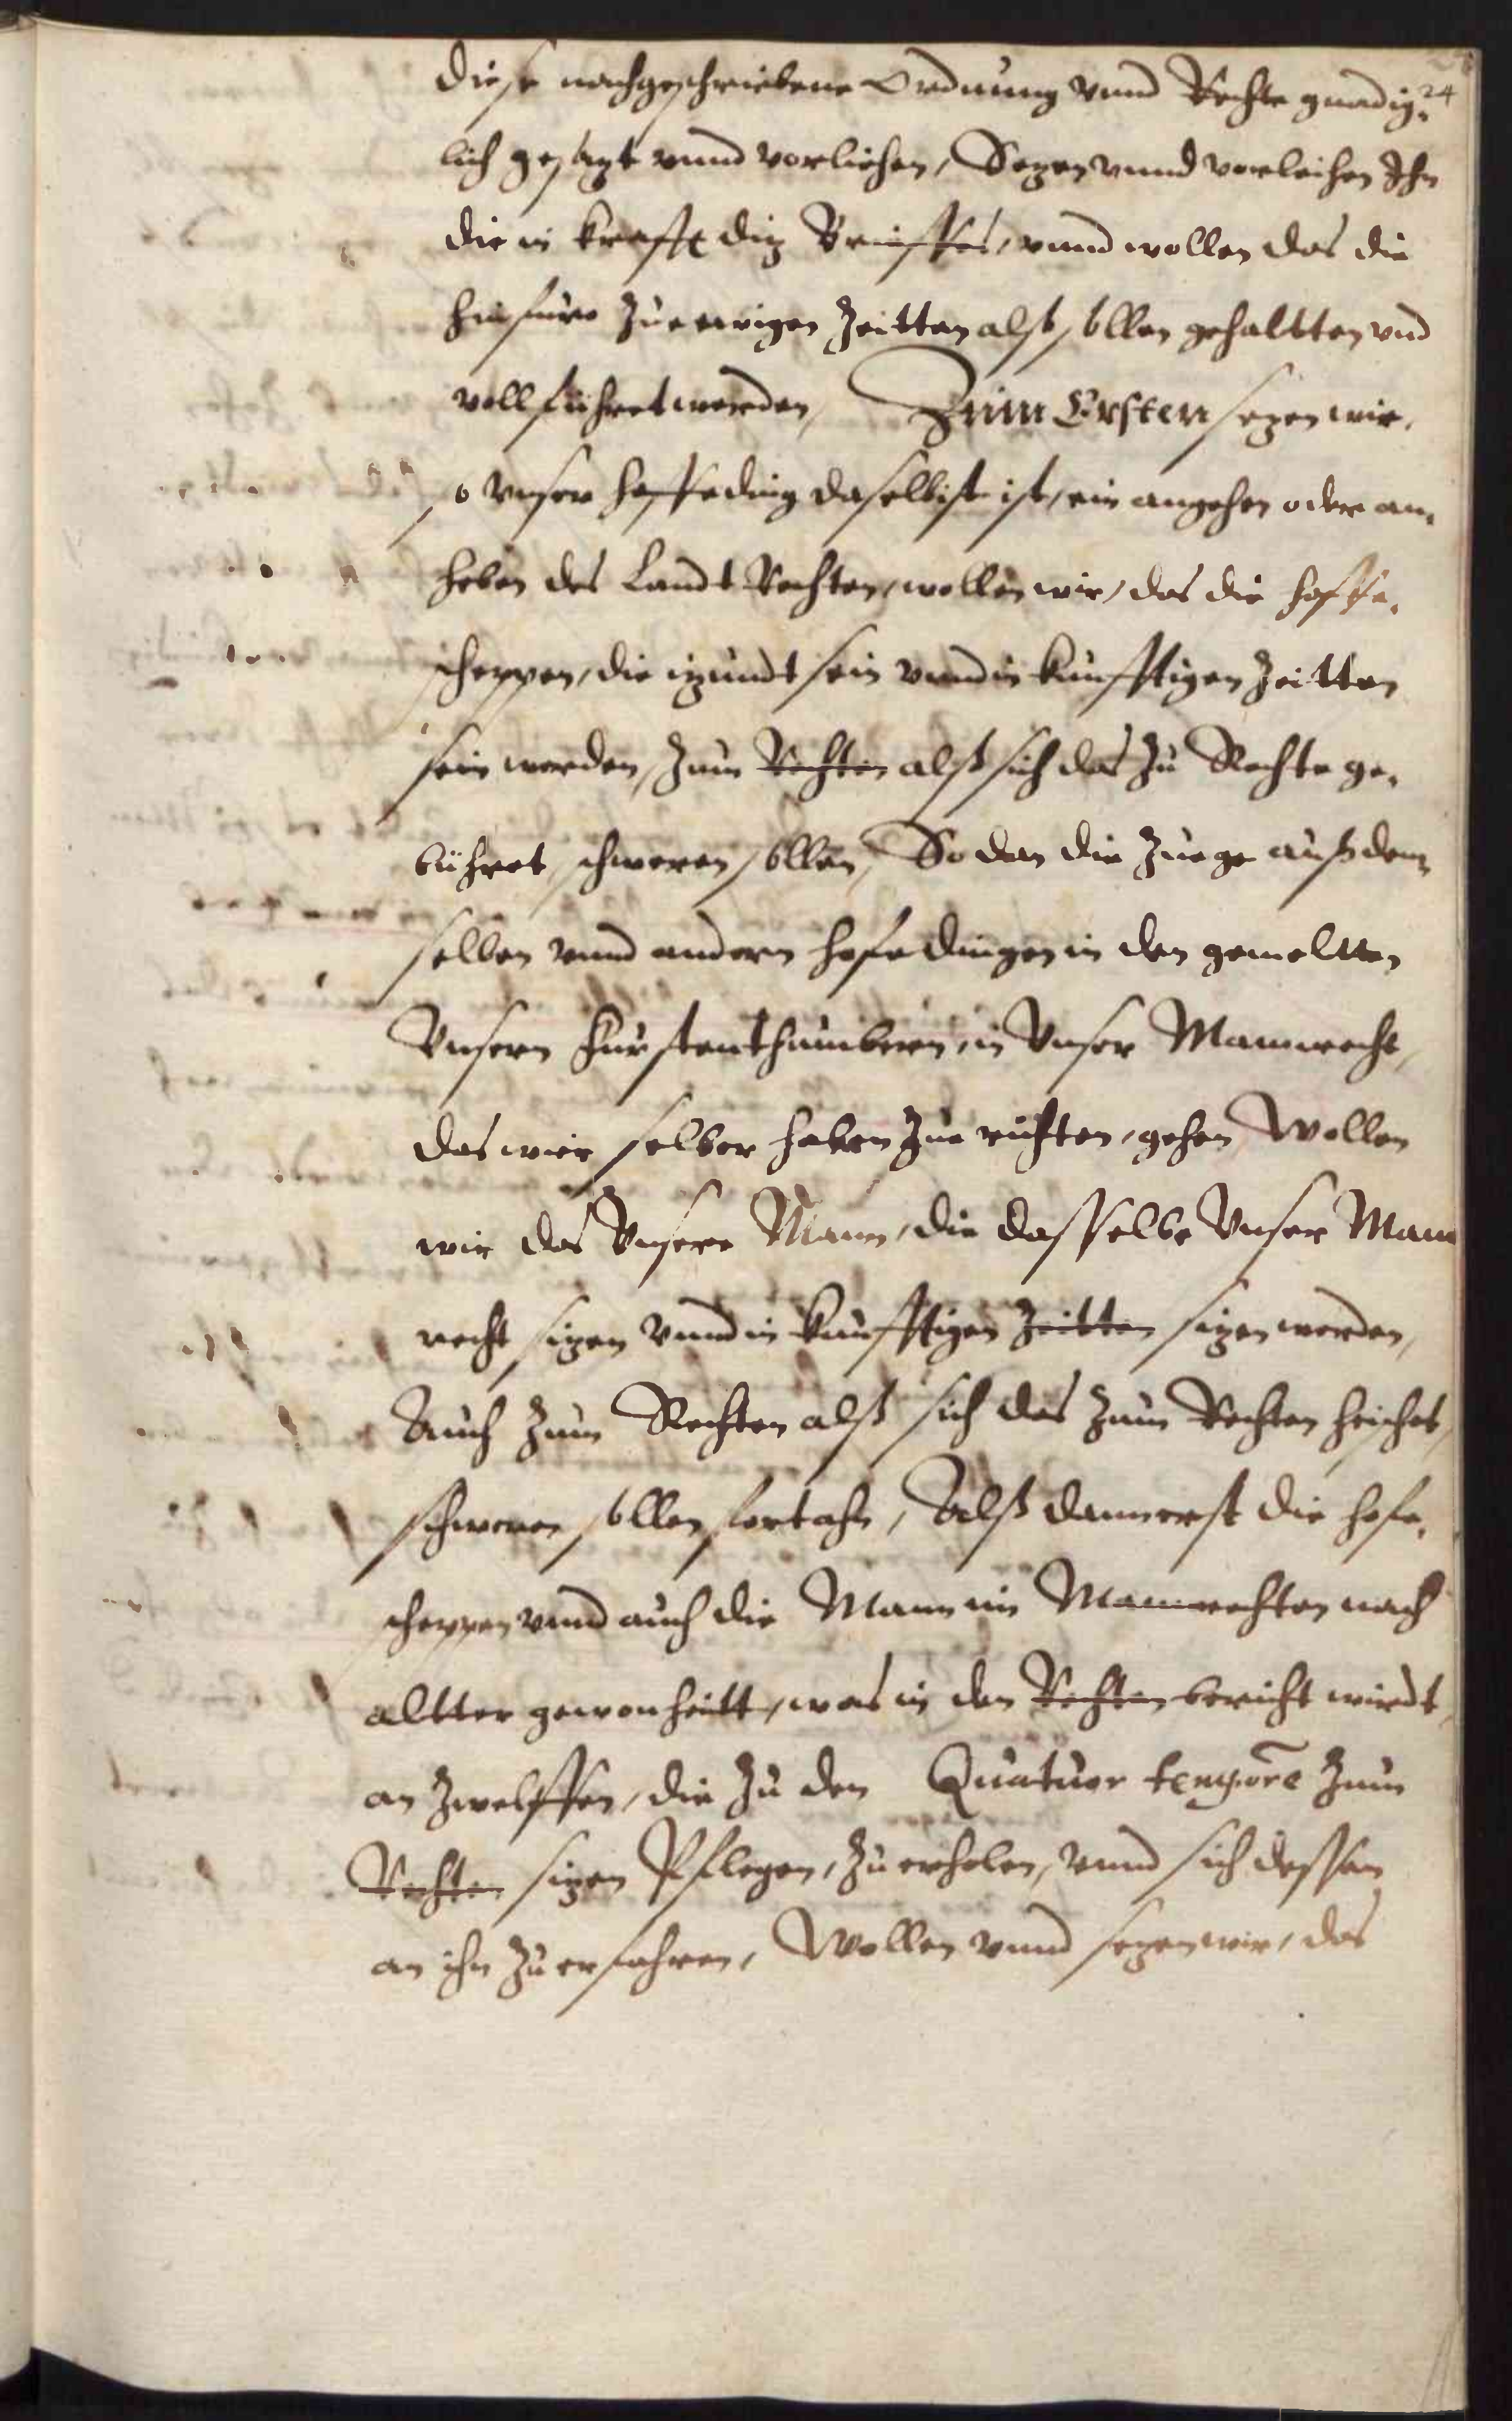 24
diese nachgeschriebene Ordnung vnnd Rechte gnadig,
lich gesagt vnnd vorliehen, Sezen vnnd vorleihen Ihn
die in krafft diz Brieffes, vnnd wollen das die
hinfuro zue ewigen Zeitten alß sollen gehaltten vnd
vollfuhret werden, Zum Ersten sezen wir,
so vnser hoffeding daselbist ist, ein angehen oder an,
heben des Landt Rechten, wollen wir, das die hoffe,
scheppen, die izundt sein vnnd in kunfftigen Zeitten
sein werden, zum Rechten alß sich das zu Rechte ge,
bühret schweren sollen, So dan die Zuege auß dem
selben vnnd andern hofedingen in den gemeltten
Vnsern Furstenthumbern, in Vnser Mannrecht,
das wir selber haben zue richten, gehen, Wollen
wir das Vnsere Mann, die dasselbe Vnser Mann
recht sizen vnnd in kunfftigen Zeitten sizen werden,
Auch zum Rechten alß sich das zum Rechten heischet,
schweren sollen fortahn, Alß dann erst die hofe,
scheppen vnnd auch die Mann im Mannrechten nach
altter gewonheitt, was in den Rechten bericht wirdt,
an zwelffen, die zu den Quatuor tempore zum
Rechten sizen Pflegen, zu erholen, vnnd sich dessen
an ihn zu erfahren, Wollen vnnd sezen wir, das